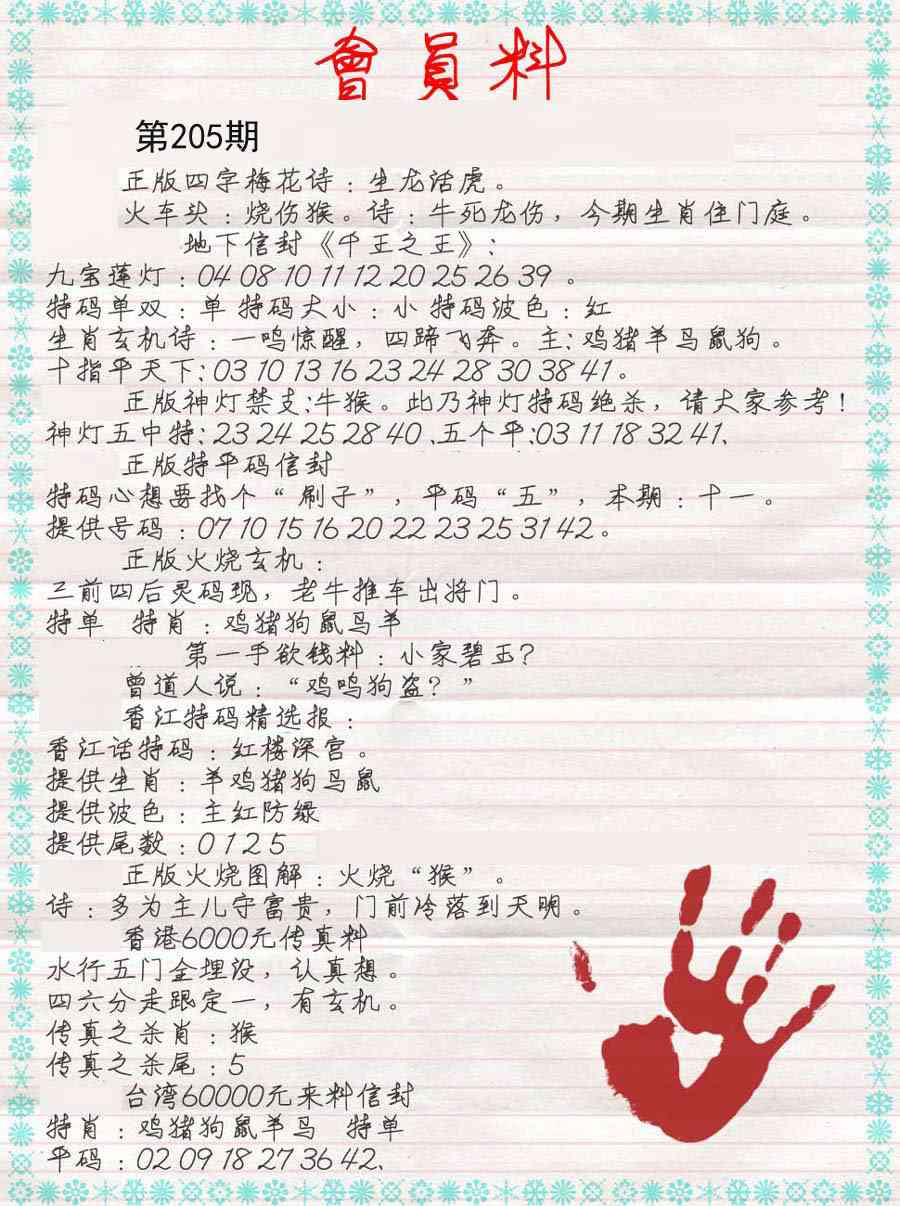 會員料
第205期
正版四字梅花诗：生龙活虎。
火车头：烧伤猴。诗：牛死龙伤，今期生肖住门庭。
地下信封《千王之王》：
九宝莲灯：04 08 10 11 12 20 25 26 39 。
特码单双：单 特码大小：小 特码波色：红
生肖玄机诗：一鸣惊醒，四蹄飞奔。主：鸡猪羊马鼠狗。
十指平天下：03 10 13 16 23 24 28 30 38 41。
正版神灯禁支：牛猴。此乃神灯特码绝杀，请大家参考！
神灯五中特：23 24 25 28 40 、五个平：03 11 18 32 41、
正版特平码信封
特码心想要找个“刷子”，平码“五”，本期：十一。
提供号码：07 10 15 16 20 22 23 25 31 42。
正版火烧玄机：
三前四后灵码现，老牛推车出将门。
特单 特肖：鸡猪狗鼠马羊
第一手欲钱料：小家碧玉？
曾道人说：“鸡鸣狗盗？”
香江特码精选报：
香江话特码：红楼深宫。
提供生肖：羊鸡猪狗马鼠
提供波色：主红防绿
提供尾数：0 1 2 5
正版火烧图解：火烧“猴”。
诗：多为主儿守富贵，门前冷落到天明。
香港6000元传真料
水行五门全埋设，认真想。
四六分走跟定一，有玄机。
传真之杀肖：猴
传真之杀尾：5
台湾60000元来料信封
特肖：鸡猪狗鼠羊马 特单
平码：02 09 18 27 36 42、